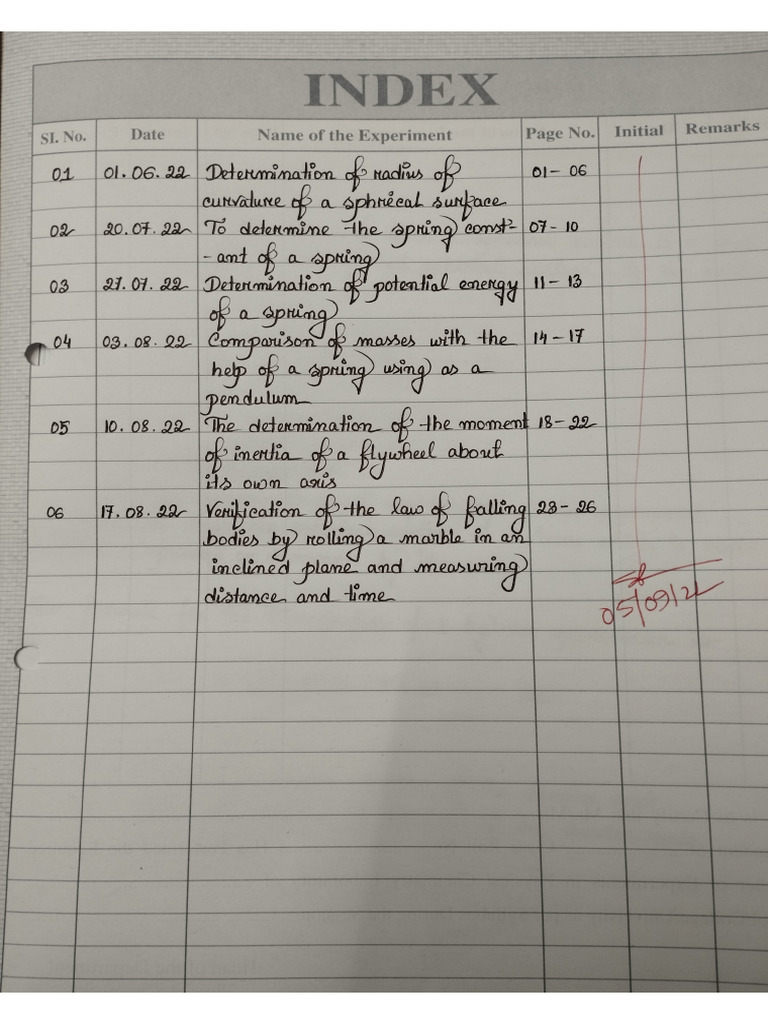 INDEX
Sl. No. Date Name of the Experiment Page No. Initial Remarks
01 01.06.22 Determination of radius of 01 - 06
curvature of a sphrecal surface
02 20.07.22 To determine the spring const- 07 - 10
- ant of a spring
03 27.07.22 Determination of potential energy 11 - 13
of a spring
04 03.08.22 Comparison of masses with the 14 - 17
help of a spring using as a
pendulum
05 10.08.22 The determination of the moment 18 - 22
of inertia of a flywheel about
its own axis
06 17.08.22 Verification of the law of falling 23 - 26
bodies by rolling a marble in an
inclined plane and measuring
distance and time
05/09/22